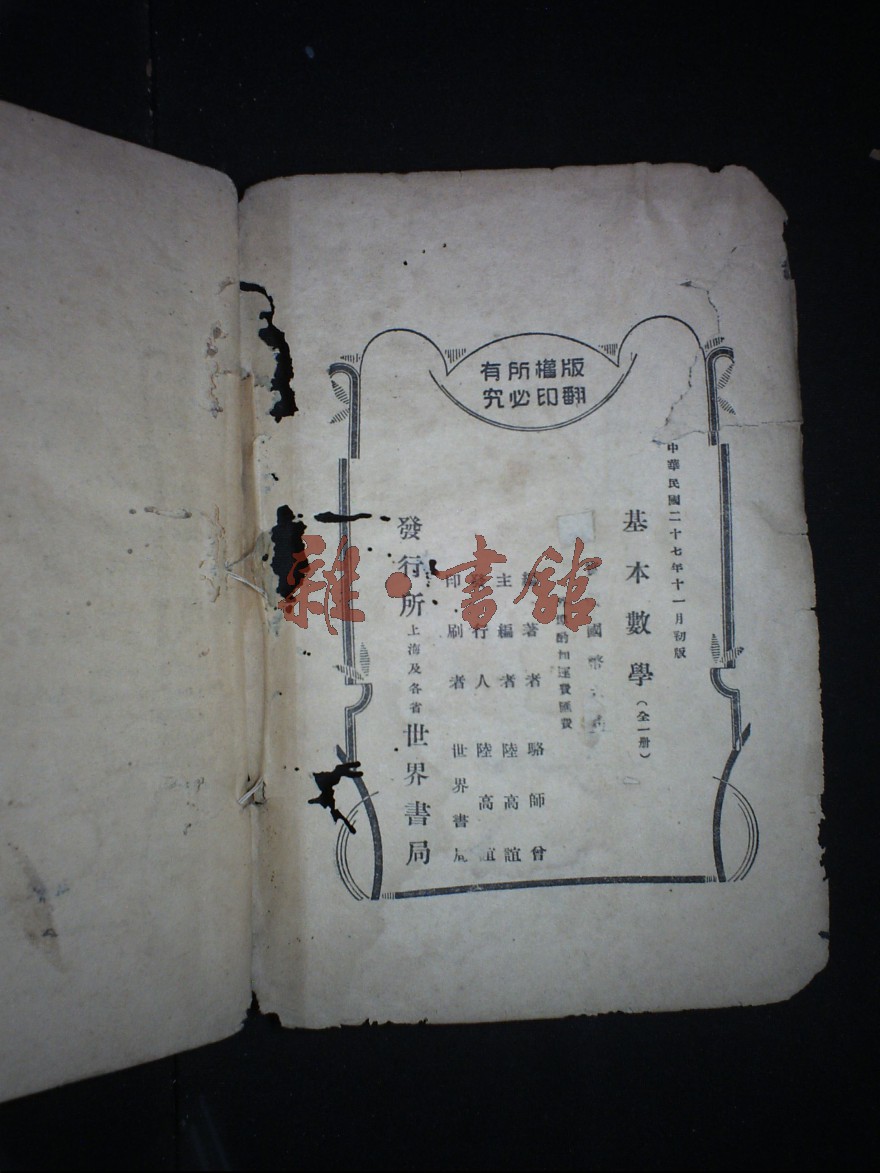 版權所有
翻印必究
中華民國二十七年十一月初版
基本數學(全一冊)
國幣
酌加運費匯費
編著者 駱師曾
主編者 陸高誼
發行人 陸高誼
印刷者 世界書局
發行所 上海及各省 世界書局
雜·書館